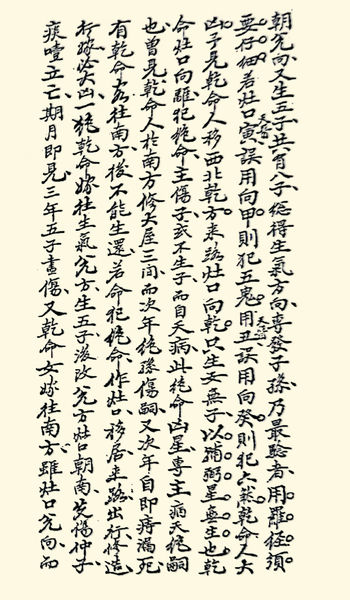 朝兌向又生五子共育八子總得生氣方向專發子孫乃最驗者用羅經須
要仔細若灶口寅天醫誤用向甲則犯五鬼用丑天醫誤用向癸則犯六煞乾命人大
凶予見乾命人移西北乾方來路灶口向乾只生女無子以輔弼星無生也乾
命灶口向離犯絕命主傷子或不生子而自夭病此絕命凶星專主病夭絕嗣
也曾見乾命人於南方修大屋三間而次年絕孫傷嗣又次年自即癆死
有乾命客往南方後不能生還若命犯絕命作灶口移居來路出行修造
行嫁必大凶一絕乾命嫁往生氣兌方生五子後改兌方灶口朝南先傷仲子
痰噎立亡期月即見三年五子盡傷又乾命女嫁往南方雖灶口兌向而